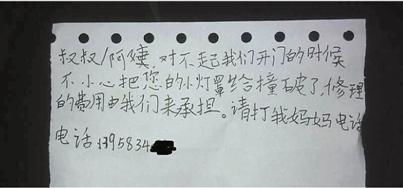 叔叔/阿姨,对不起我们开门的时候
不小心把您的小灯罩给撞破了,修理
的费用由我们来承担。请打我妈妈电话
电话1395834